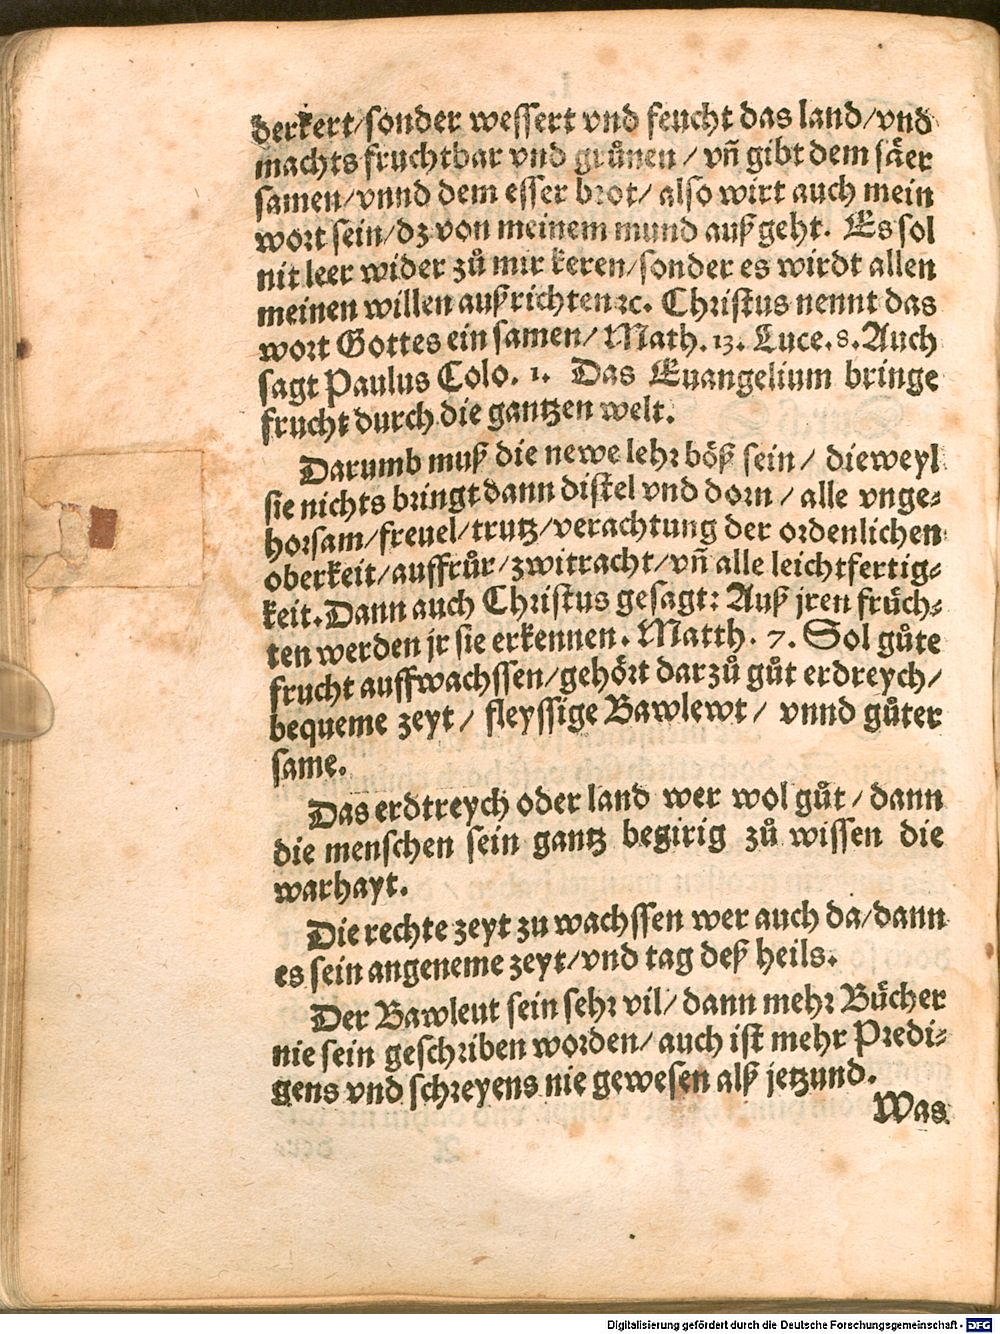 derkert/sonder wessert vnd feucht das land/vnd
machts fruchtbar vnd grůnen / vñ gibt dem säer
samen/vnnd dem esser brot/ also wirt auch mein
wort sein/dz von meinem mund außgeht. Es sol
nit leer wider zů mir keren/sonder es wirdt allen
meinen willen außrichten ꝛc. Christus nennt das
wort Gottes ein samen/ Math. 13. Luce. 8. Auch
sagt Paulus Colo. 1. Das Euangelium bringe
frucht durch die gantzen welt.
Darumb muß die newe lehr böß sein/ dieweyl
sie nichts bringt dann distel vnd dorn / alle vnge-
horsam/freuel/trutz/verachtung der ordenlichen
oberkeit/auffrůr/zwitracht/vñ alle leichtfertig-
keit. Dann auch Christus gesagt: Auß jren früch-
ten werden jr sie erkennen. Matth. 7. Sol gůte
frucht auffwachssen/gehört darzů gůt erdreych/
bequeme zeyt / fleyssige Bawlewt / vnnd gůter
same.
Das erdtreych oder land wer wol gůt / dann
die menschen sein gantz begirig zů wissen die
warhayt.
Die rechte zeyt zu wachssen wer auch da/dann
es sein angeneme zeyt/vnd tag deß heils.
Der Bawleut sein sehr vil/ dann mehr Bücher
nie sein geschriben worden/ auch ist mehr Predi-
gens vnd schreyens nie gewesen alß jetzund.
Was
Digitalisierung gefördert durch die Deutsche Forschungsgemeinschaft - DFG